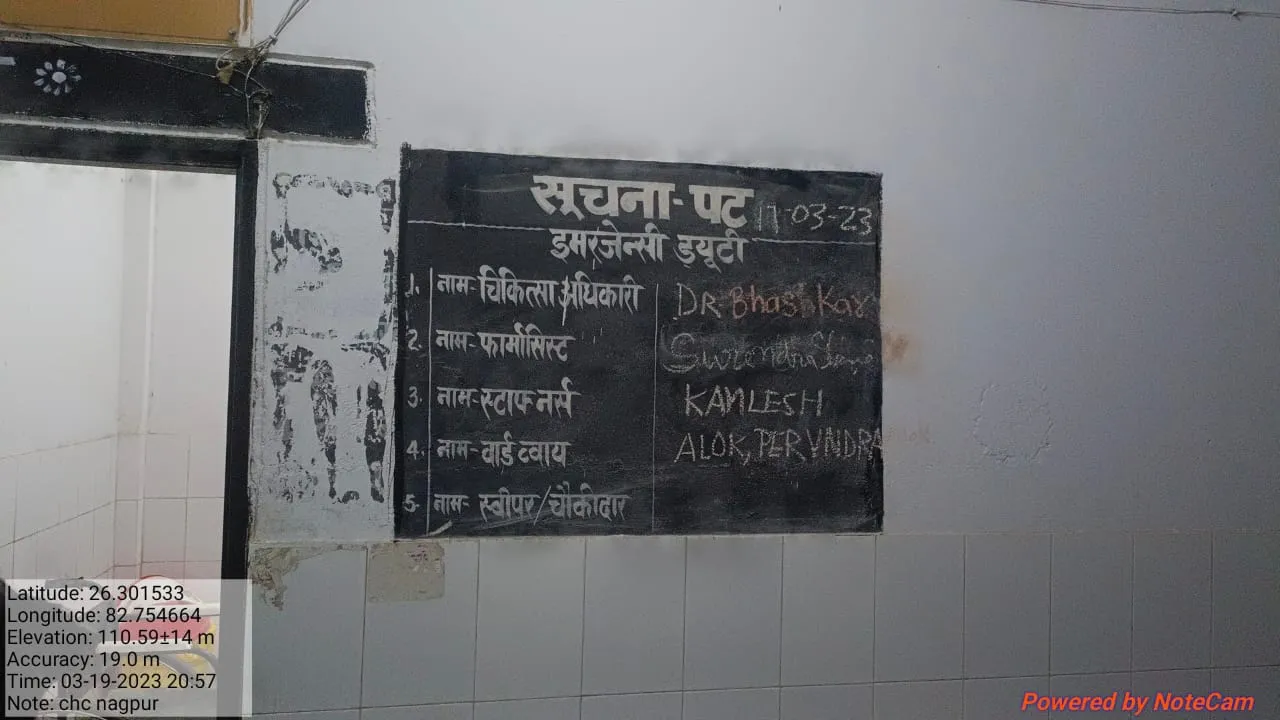 सूचना-पट 17-03-23
इमरजेन्सी ड्यूटी
1. नाम-चिकित्सा अधिकारी DR Bhashkar
2. नाम-फार्मासिस्ट Surendra
3. नाम-स्टाफ नर्स KAMLESH
4. नाम-वार्ड व्वाय ALOK, PERVNDRA
5- नाम- स्वीपर/चौकीदार
Latitude: 26.301533
Longitude: 82.754664
Elevation: 110.59±14 m
Accuracy: 19.0 m
Time: 03-19-2023 20:57
Note: chc nagpur
Powered by NoteCam